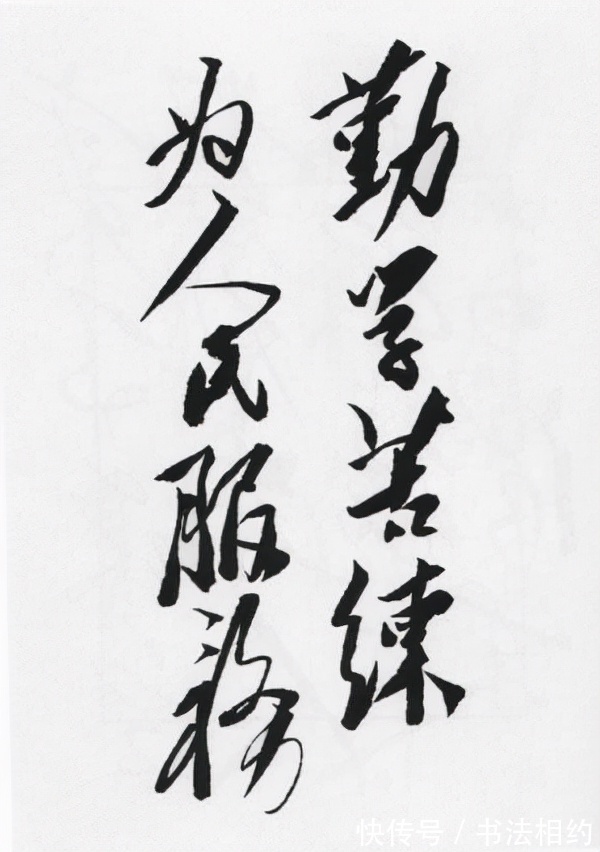 勤学苦练
为人民服务
快传号/书法相约